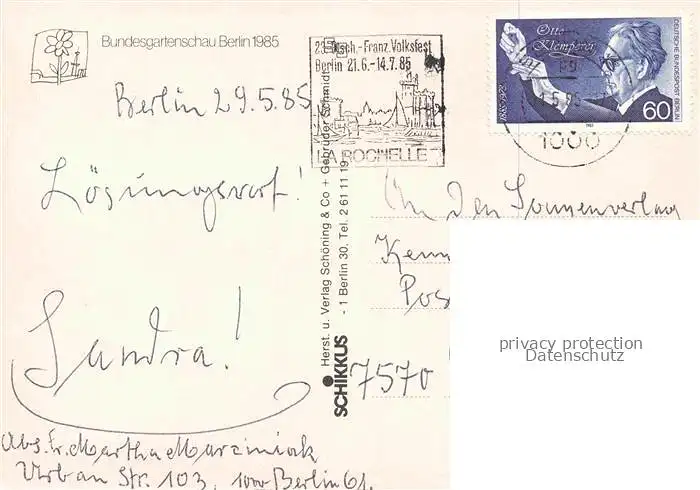 Bundesgartenschau Berlin 1985
Berlin 29.5.85
Lösungswort!
Sandra!
Abs. Fr. Martha Marziniak
Urban Str. 103, 1000 Berlin 61.
23. Dtsch.-Franz. Volksfest
Berlin 21.6.-14.7.85
LA ROCHELLE
Herst. u. Verlag Schöning & Co + Gebrüder Schmidt
- 1 Berlin 30, Tel. 2 61 11 19
SCHIKKUS
Otto
Klemperer
1885-1973
DEUTSCHE BUNDESPOST BERLIN
60
1000
An den Sonnenverlag
7570
privacy protection
Datenschutz